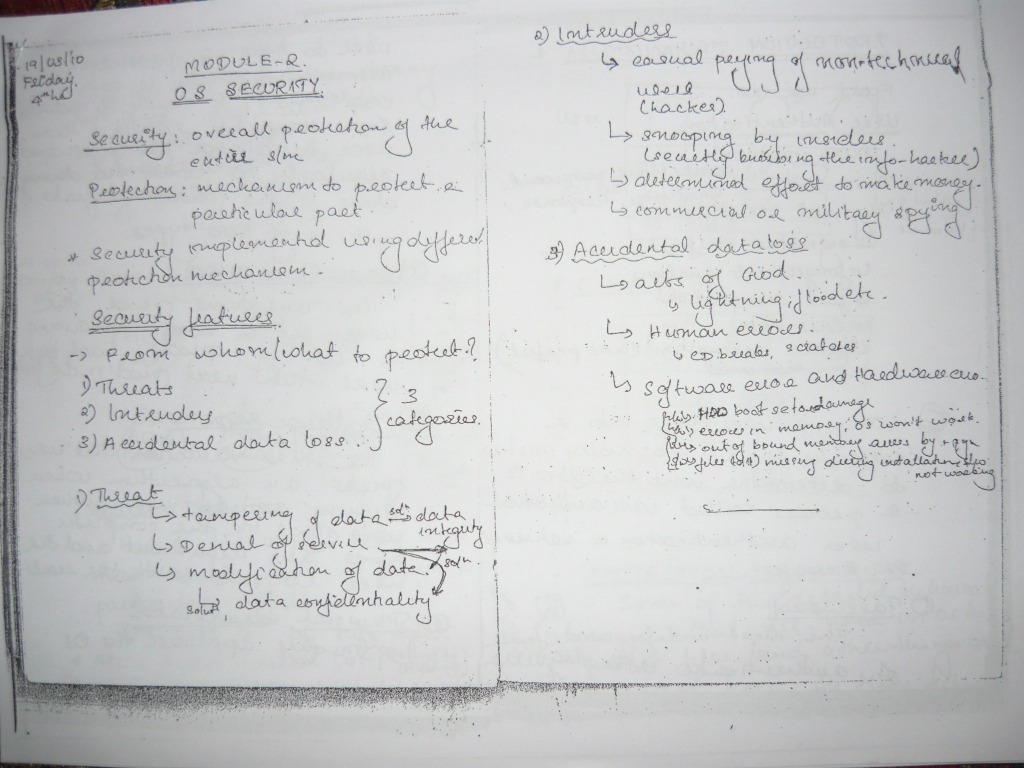 19/03/10
Friday
4th hr
MODULE-2.
OS SECURITY.
Security: overall protection of the
entire s/m
Protection: mechanism to protect a
particular part.
* Security implemented using different
protection mechanism.
Security features.
→ From whom/what to protect?
1) Threats
2) Intruders
3) Accidental data loss.
3
categories.
1) Threat
↳ tampering of data soln → data
integrity
↳ Denial of service
↳ modification of data. soln.
↳ data confidentiality
2) Intruders
↳ casual prying of non-technical
users
(hacker)
↳ snooping by insiders
(secretly knowing the info-hacker)
↳ determined effort to make money.
↳ commercial or military spying
3) Accidental data loss
↳ acts of God
↳ lightning, flood etc.
↳ Human errors
↳ CD breaks, scratches
↳ Software error and Hardware
HDD boot sector damage
errors in memory, OS won't work.
out of bound memory access by
files missing during installation
not working